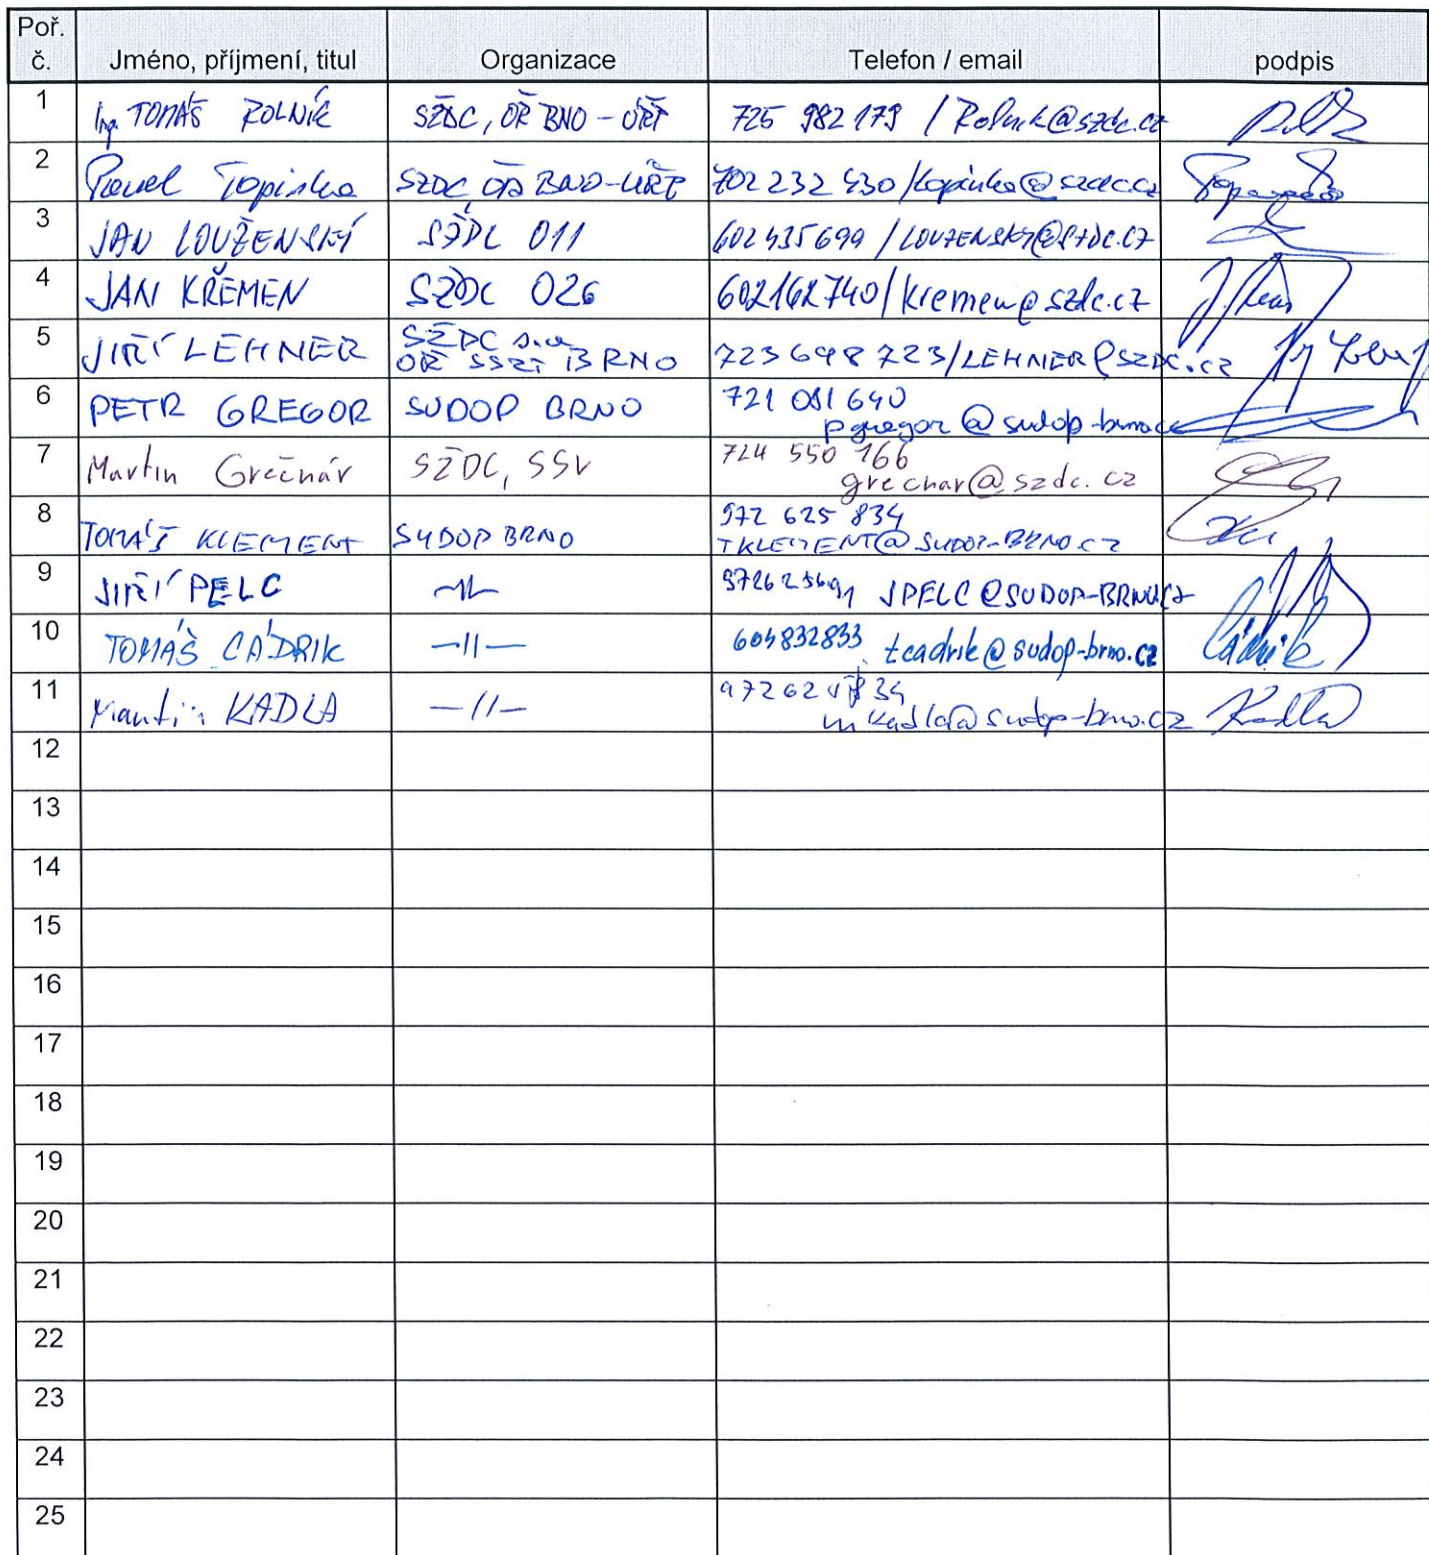 Poř. č. Jméno, příjmení, titul Organizace Telefon / email podpis
1 Ing. TOMÁŠ ROLNÍK SŽDC, OŘ BNO - ÚŘT 725 982 179 / Rolnik@szdc.cz
2 Pavel Topinka SŽDC OŘ BNO-ÚŘT 702 232 430 /topinka@szdc.cz
3 JAN LOUŽENSKÝ SŽDC 011 602435699 / LOUZENSKY@SZDC.CZ
4 JAN KŘEMEN SŽDC 026 602162740/kremen@szdc.cz
5 JIŘÍ LEHNER SŽDC s.o. OŘ SSZT BRNO 723 698 723/LEHNER@SZDC.cz
6 PETR GREGOR SUDOP BRNO 721 081 640
pgregor@sudop-brno.cz
7 Martin Grečnár SŽDC, SSV 724 550 166
grecnar@szdc.cz
8 TOMÁŠ KLEMENT SUDOP BRNO 972 625 834
TKLEMENT@SUDOP-BRNO.CZ
9 JIŘÍ PELC -||- JPELC@SUDOP-BRNO.CZ
10 TOMÁŠ CÁDRIK -||- 605832833 tcadrik@sudop-brno.cz Cádrik
11 Martin KADLA -//-
mkadla@sudop-brno.cz Kadla
12
13
14
15
16
17
18
19
20
21
22
23
24
25